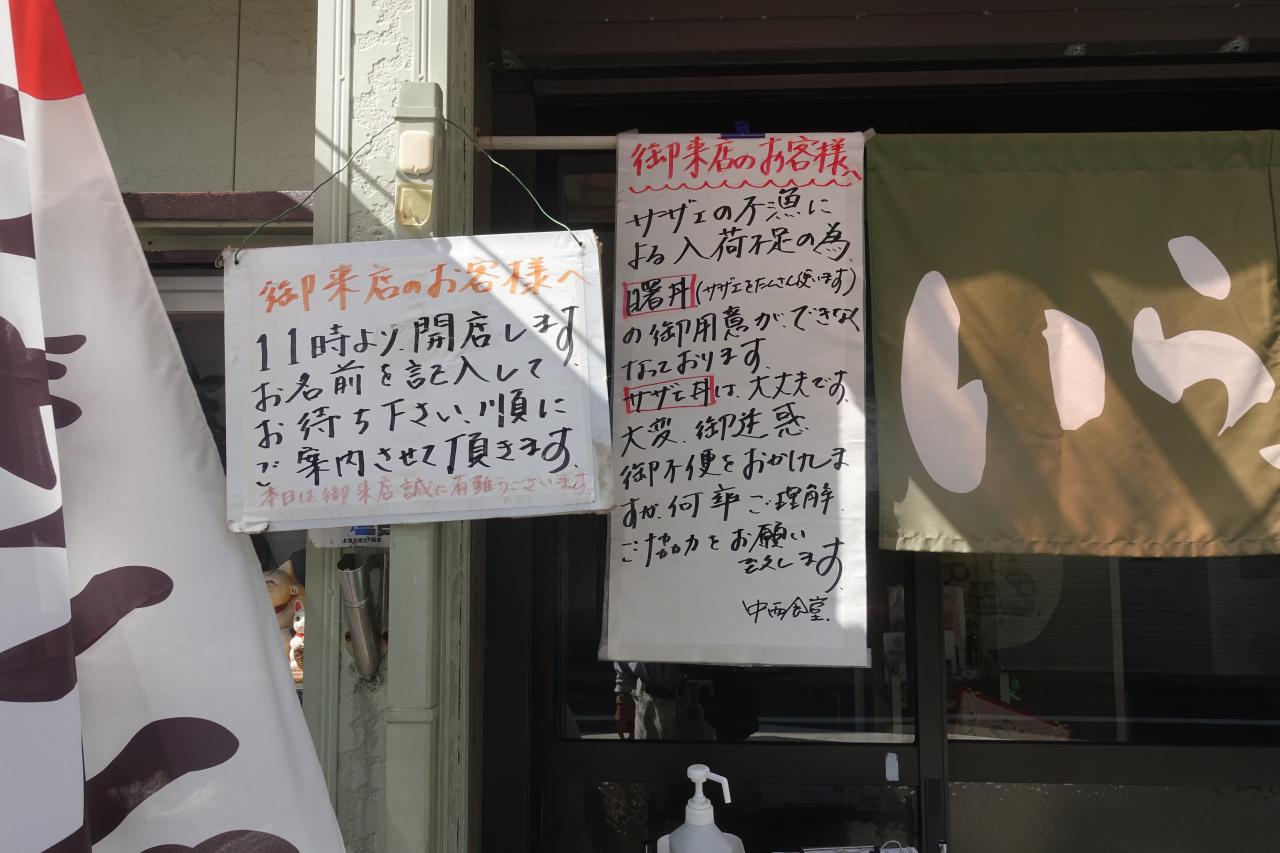 御来店のお客様へ
11時より、開店します。
お名前を記入して
お待ち下さい、順に
ご案内させて頂きます。
本日は御来店誠に有難うございます。
御来店のお客様へ
サザエの不漁に
よる入荷不足の為、
曙丼(サザエをたくさん使います)
の御用意が、できなく
なっております。
サザエ丼は、大丈夫です。
大変、御迷惑
御不便をおかけしま
すが、何卒ご理解、
ご協力をお願い
致します。
中西食堂、
いら